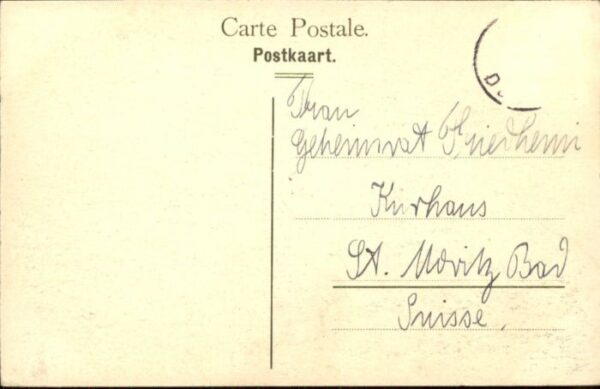 Carte Postale.
Postkaart.
Frau
Geheimrat Friedheim
Kurhaus
St. Moritz Bad
Suisse.